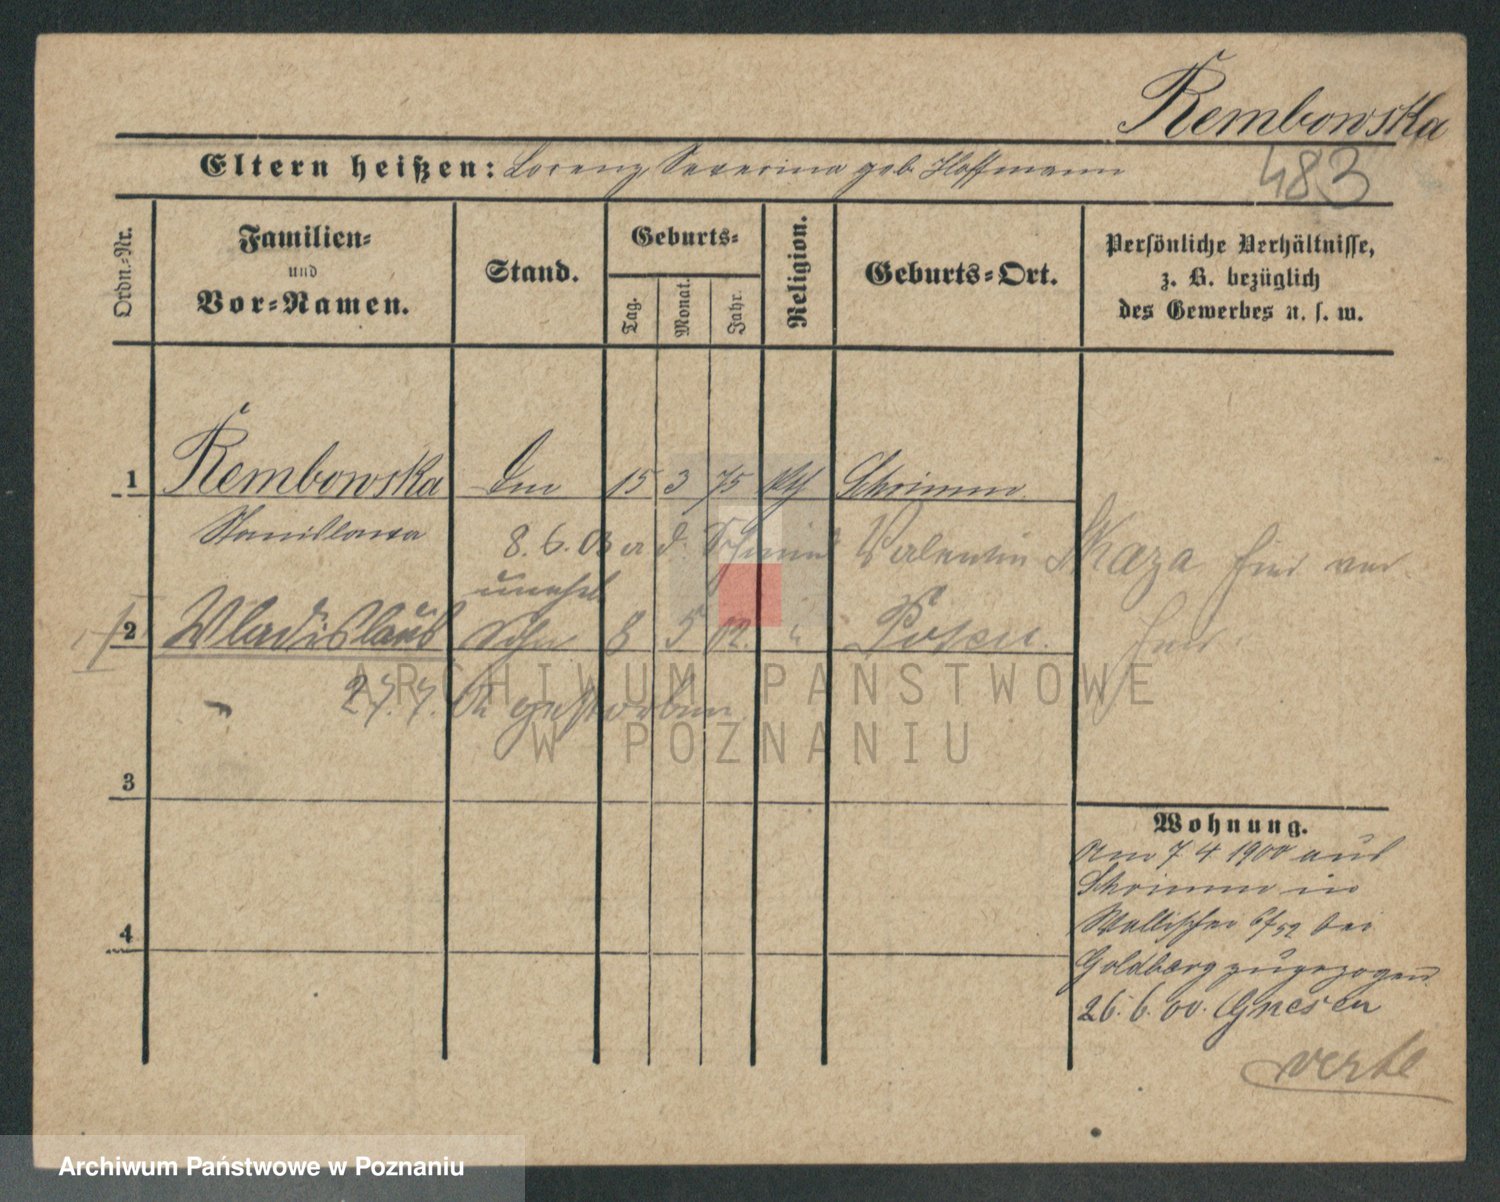 Rembowska
483
Eltern heißen: Lorenz Severina geb. Hoffmann
Ordn.-Nr.
Familien-
und
Vor-Namen.
Stand.
Geburts-
Tag.
Monat.
Jahr.
Religion.
Geburts-Ort.
Persönliche Verhältnisse,
z. B. bezüglich
des Gewerbes u. s. w.
1 Rembowska 15 3 75 Schrimm
Stanislawa 8. 6. 03 d. Schmied Valentin Skaza hier
unehel
2 Wladislaus Sohn 8 5 02. " Posen.
gestorben
3
4
Wohnung.
Am 7 4 1900 aus
Schrimm in
Wallischei bei
Goldberg zugezogen
26. 6. 00. Gnesen
verte
ARCHIWUM PAŃSTWOWE
W POZNANIU
Archiwum Państwowe w Poznaniu